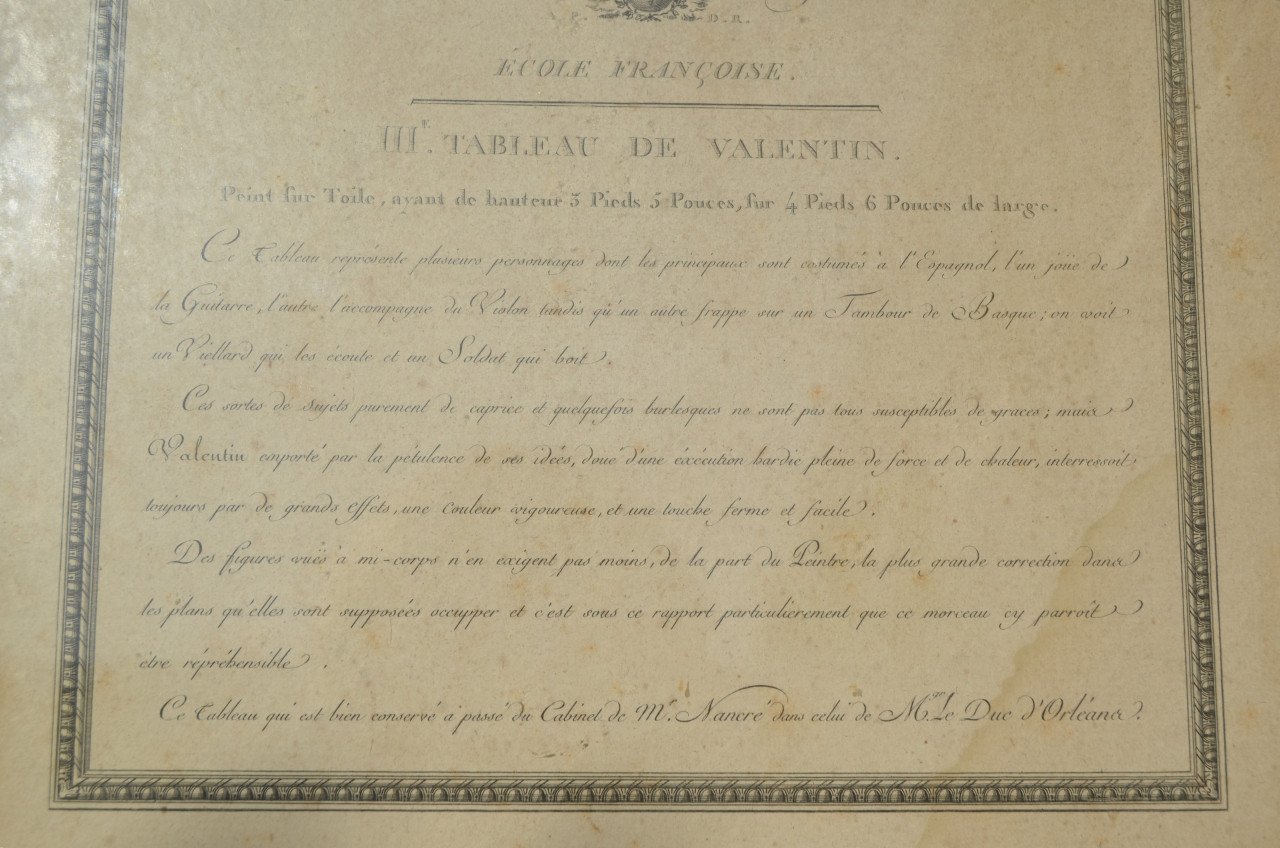 P. D. R.
ÉCOLE FRANÇOISE.
IIIᴱ. TABLEAU DE VALENTIN.
Peint sur Toile, ayant de hauteur 3 Pieds 5 Pouces, sur 4 Pieds 6 Pouces de large.
Ce Tableau représente plusieurs personnages dont les principaux sont costumés à l'Espagnol, l'un joüe de
la Guitarre, l'autre l'accompagne du Violon tandis qu'un autre frappe sur un Tambour de Basque; on voit
un Viellard qui les écoute et un Soldat qui boit.
Ces sortes de sujets purement de caprice et quelquefois burlesques ne sont pas tous susceptibles de graces; mais
Valentin emporté par la pétulence de ses idées, doué d'une éxécution hardie pleine de force et de chaleur, interressoit
toujours par de grands effets, une couleur vigoureuse, et une touche ferme et facile.
Des figures vuës à mi-corps n'en exigent pas moins, de la part du Peintre, la plus grande correction dans
les plans qu'elles sont supposées occupper et c'est sous ce rapport particulièrement que ce morceau cy parroît
être répréhensible.
Ce Tableau qui est bien conservé a passé du Cabinet de Mʳ. Nancré dans celui de Mᵍʳ. Le Duc d'Orléans.